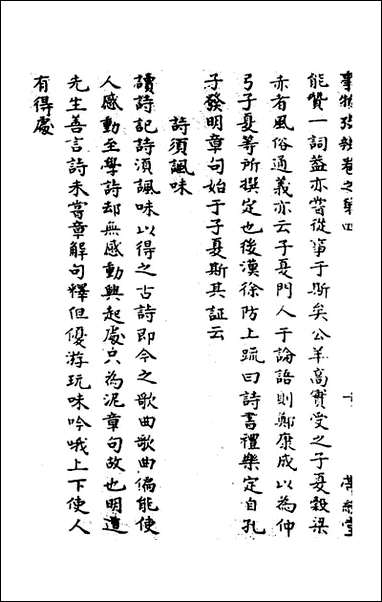 事物考辨卷之第四
能贊一詞蓋亦嘗從事于斯矣公羊高實受之子夏穀梁
赤者風俗通義亦云子夏門人于論語則鄭康成以為仲
弓子夏等所撰定也後漢徐防上疏曰詩書禮樂定自孔
子發明章句始于子夏斯其証云
詩須諷味
讀詩記詩須諷味以得之古詩即今之歌曲歌曲偏能使
人感動至學詩却無感動興起處只為泥章句故也明道
先生善言詩未嘗章解句釋但優游玩味吟哦上下使人
有得處